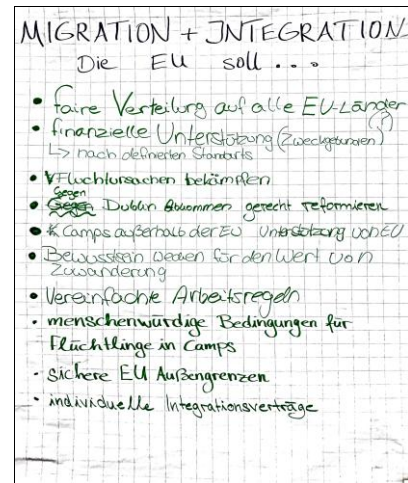 MIGRATION + INTEGRATION
Die EU soll ...
• faire Verteilung auf alle EU-Länder
(?)
• finanzielle Unterstützung (Zweckgebunden)
↳ nach definierten Standarts
• Fluchtursachen bekämpfen
Gegen
• Dublin Abkommen gerecht reformieren
• Camps außerhalb der EU Unterstützung von EU
• Bewusstsein wecken für den Wert von
Zuwanderung
• Vereinfachte Arbeitsregeln
• menschenwürdige Bedingungen für
Flüchtlinge in Camps
• sichere EU Außengrenzen
• individuelle Integrationsverträge